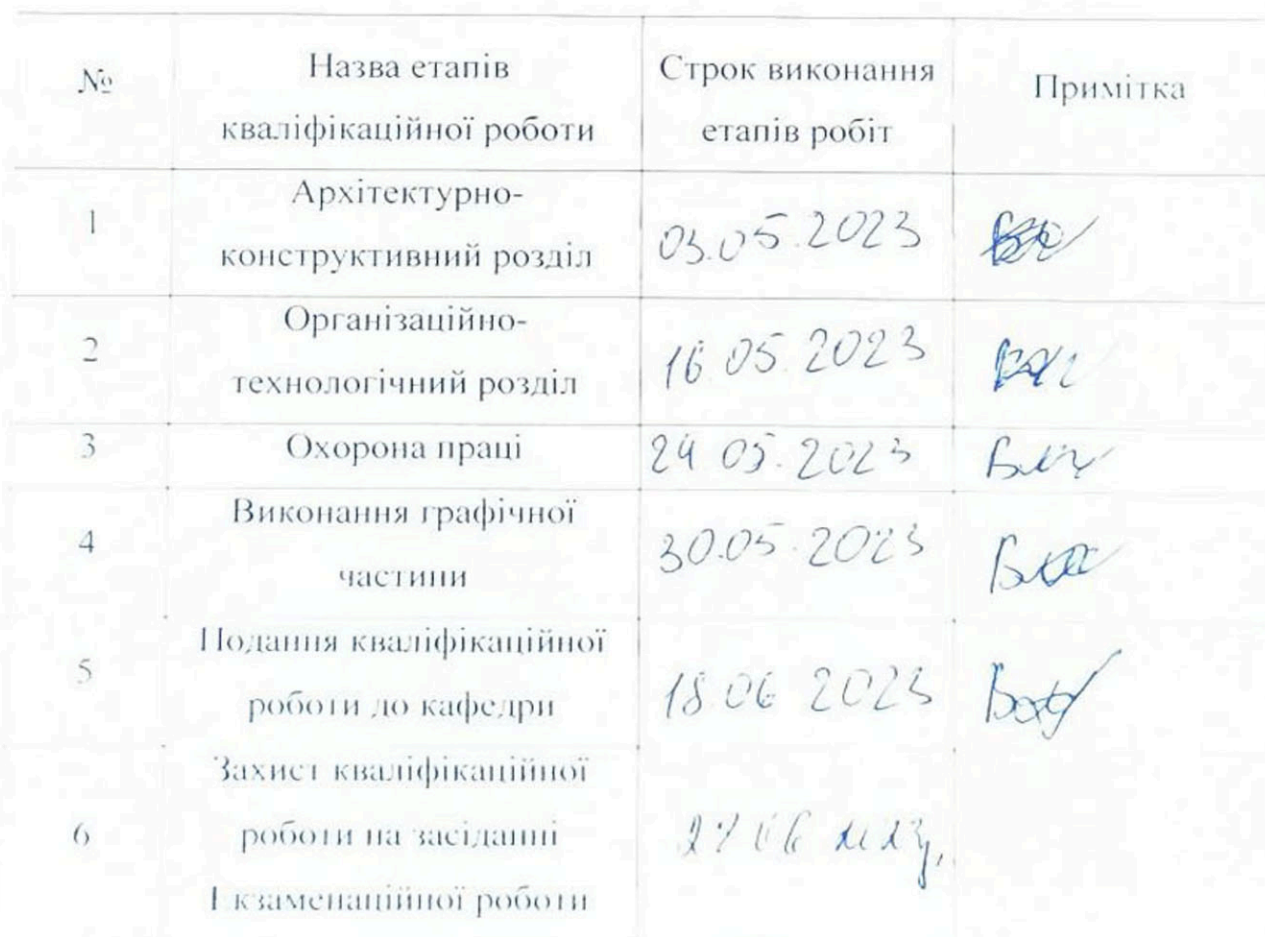 №
Назва етапів
кваліфікаційної роботи
Строк виконання
етапів робіт
Примітка
1
Архітектурно-
конструктивний розділ
03.05.2023
2
Організаційно-
технологічний розділ
16.05.2023
3
Охорона праці
24 05.2023
4
Виконання графічної
частини
30.05.2023
5
Подання кваліфікаційної
роботи до кафедри
18 06 2023
6
Захист кваліфікаційної
роботи на засіданні
Екзаменаційної роботи